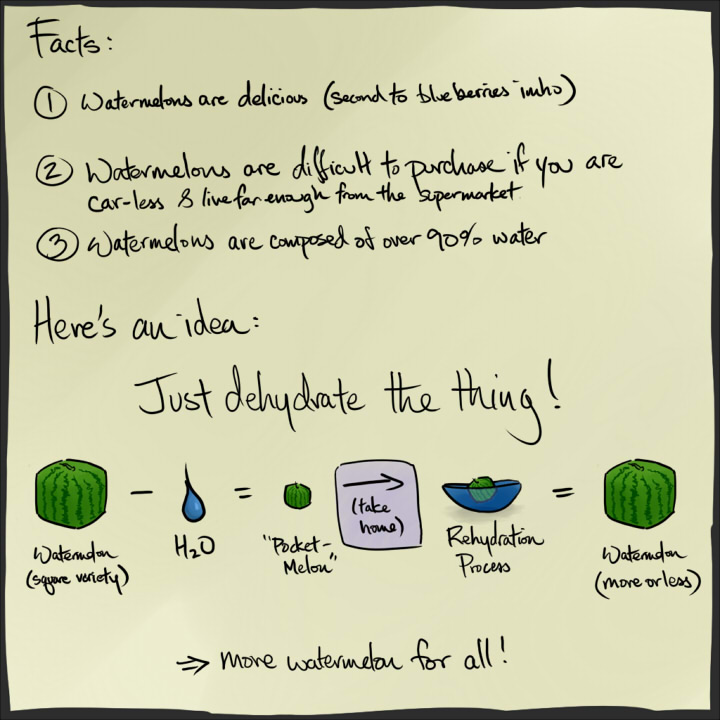 Facts:
① Watermelons are delicious (second to blueberries imho)
② Watermelons are difficult to purchase if you are
car-less & live far enough from the supermarket
③ Watermelons are composed of over 90% water
Here's an idea:
Just dehydrate the thing!
− = → =
(take
home)
Watermelon
(square variety)
H₂O
"Pocket-
Melon"
Rehydration
Process
Watermelon
(more or less)
⇒ more watermelon for all!